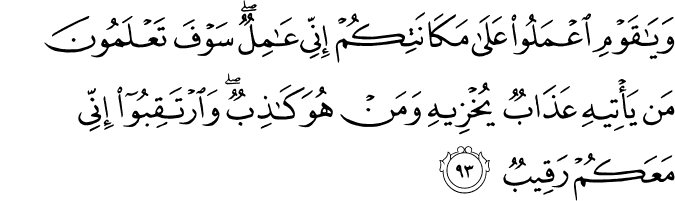 وَيَـٰقَوْمِ ٱعْمَلُوا۟ عَلَىٰ مَكَانَتِكُمْ إِنِّى عَـٰمِلٌ ۖ سَوْفَ تَعْلَمُونَ
مَن يَأْتِيهِ عَذَابٌ يُخْزِيهِ وَمَنْ هُوَ كَـٰذِبٌ ۖ وَٱرْتَقِبُوٓا۟ إِنِّى
مَعَكُمْ رَقِيبٌ ٩٣